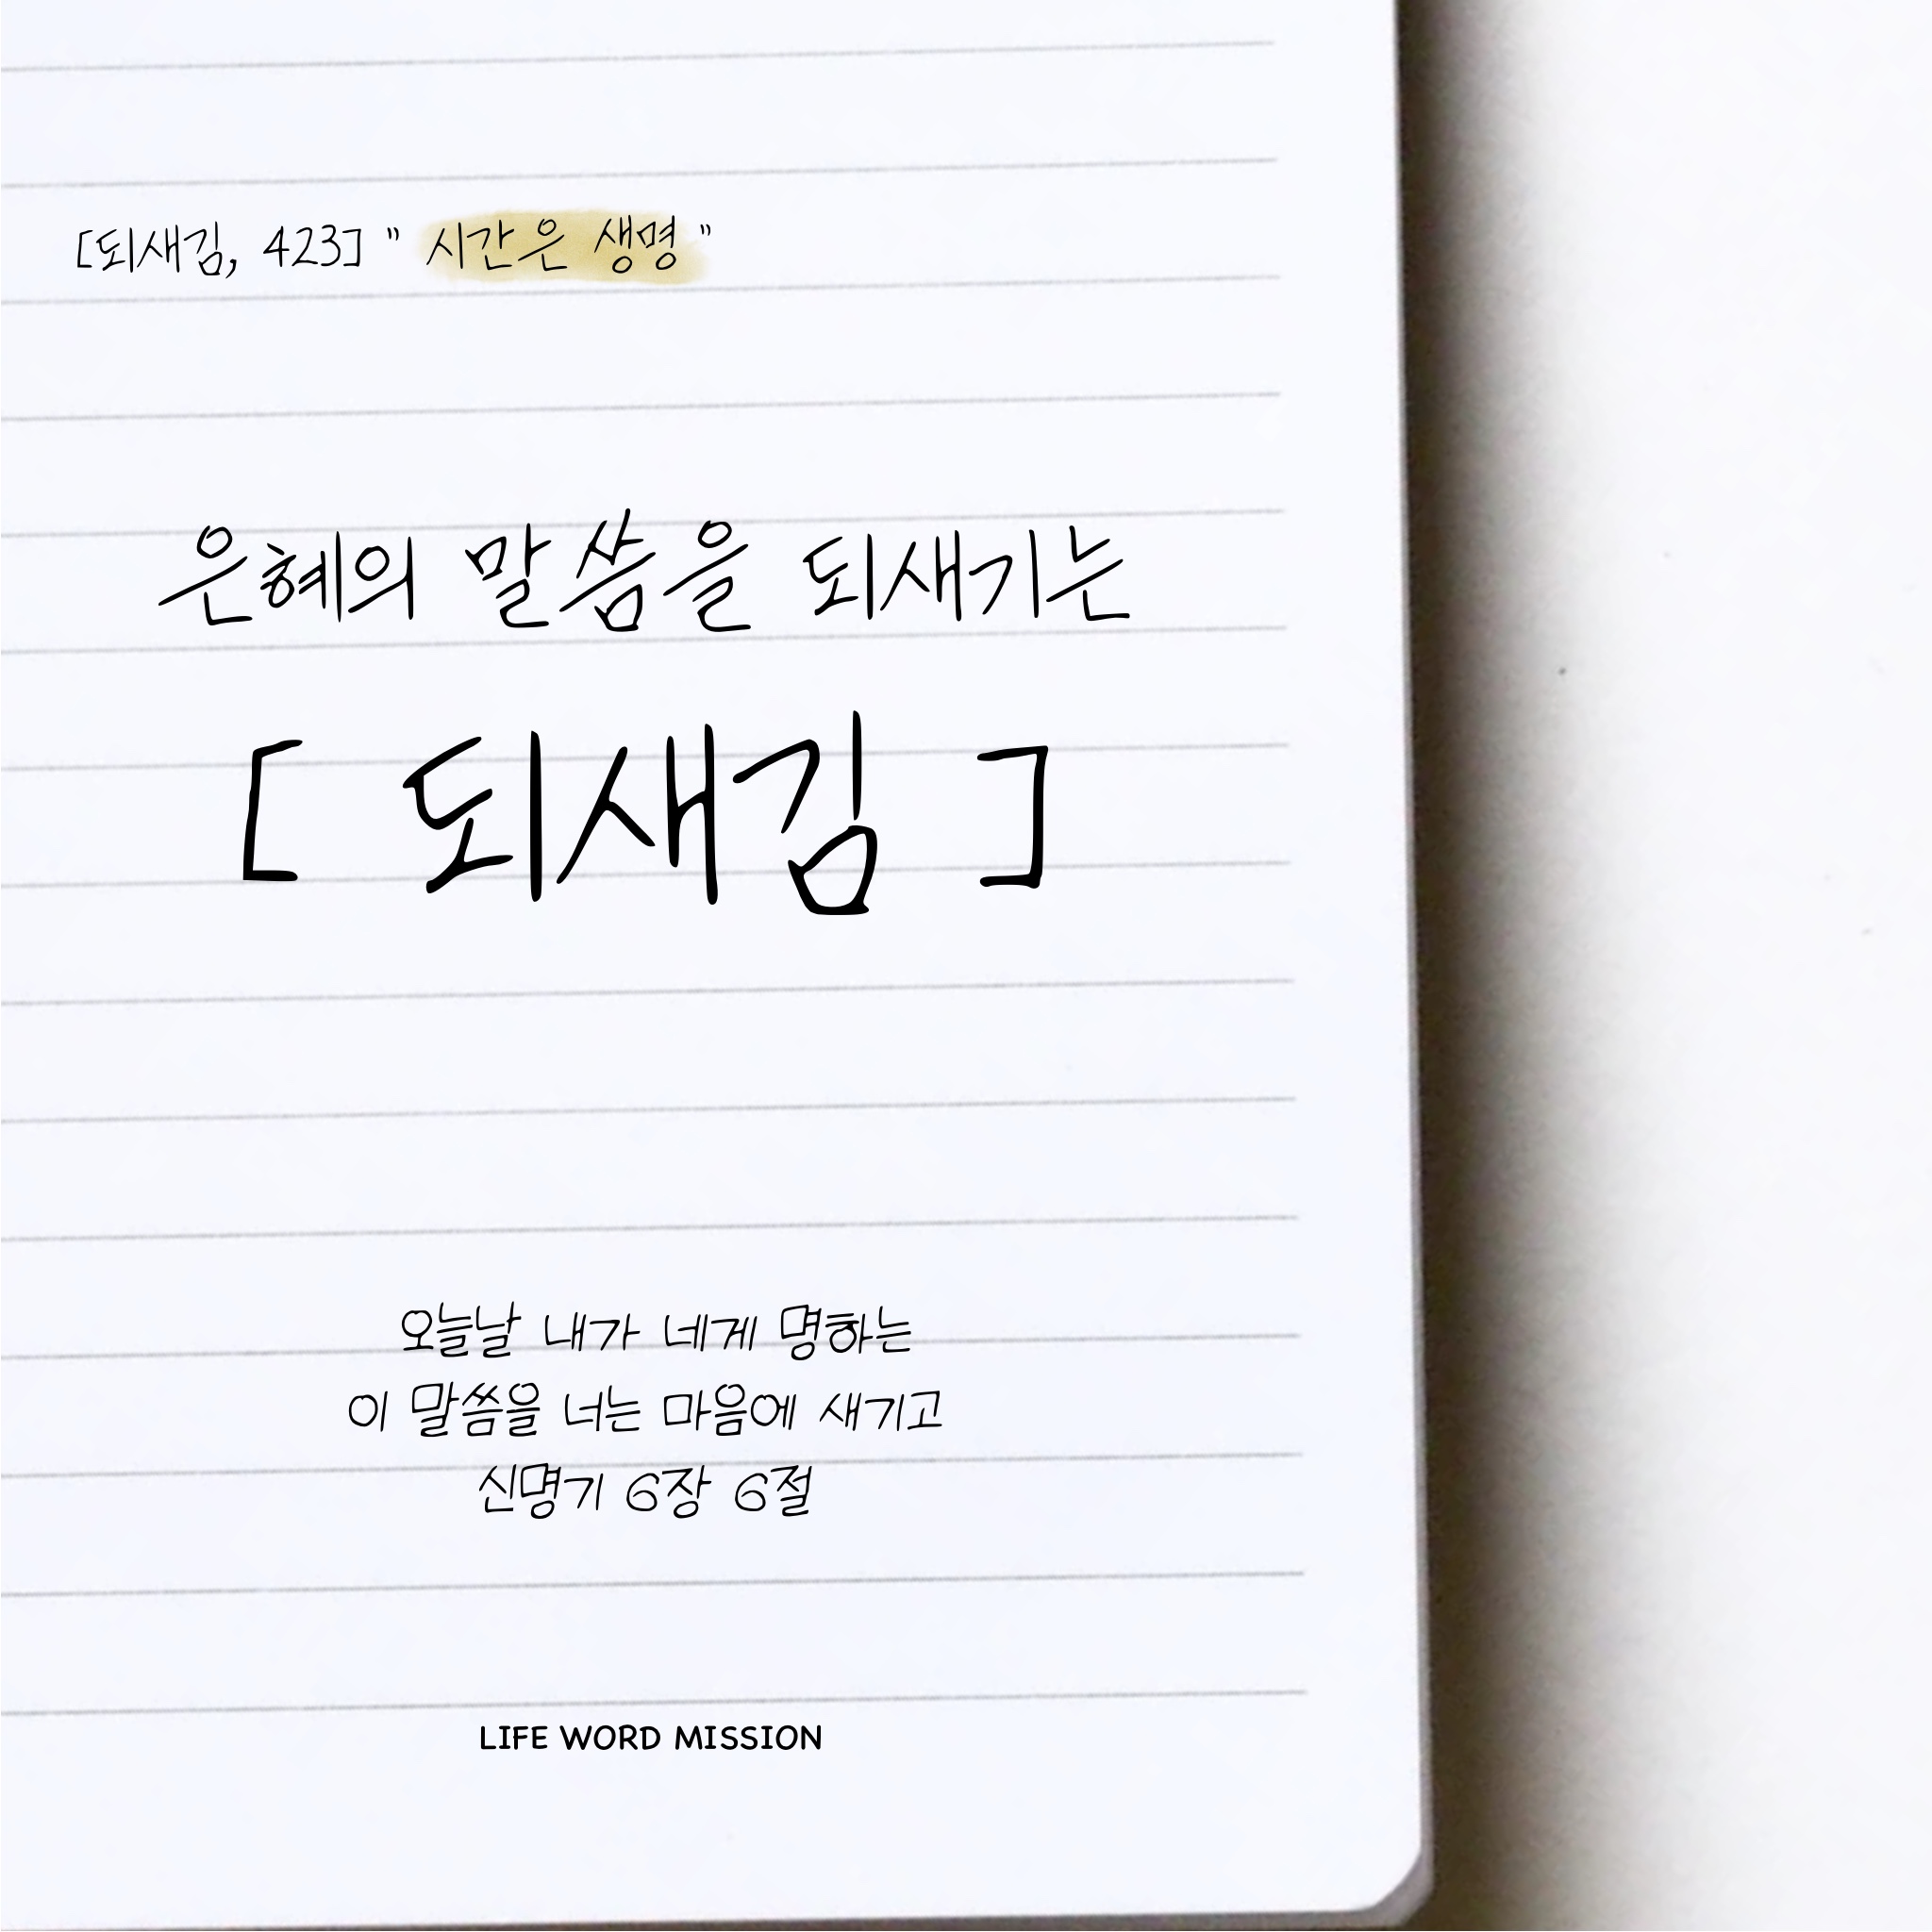 [되새김, 423] " 시간은 생명 "
은혜의 말씀을 되새기는
[ 되새김 ]
오늘날 내가 네게 명하는
이 말씀을 너는 마음에 새기고
신명기 6장 6절
LIFE WORD MISSION